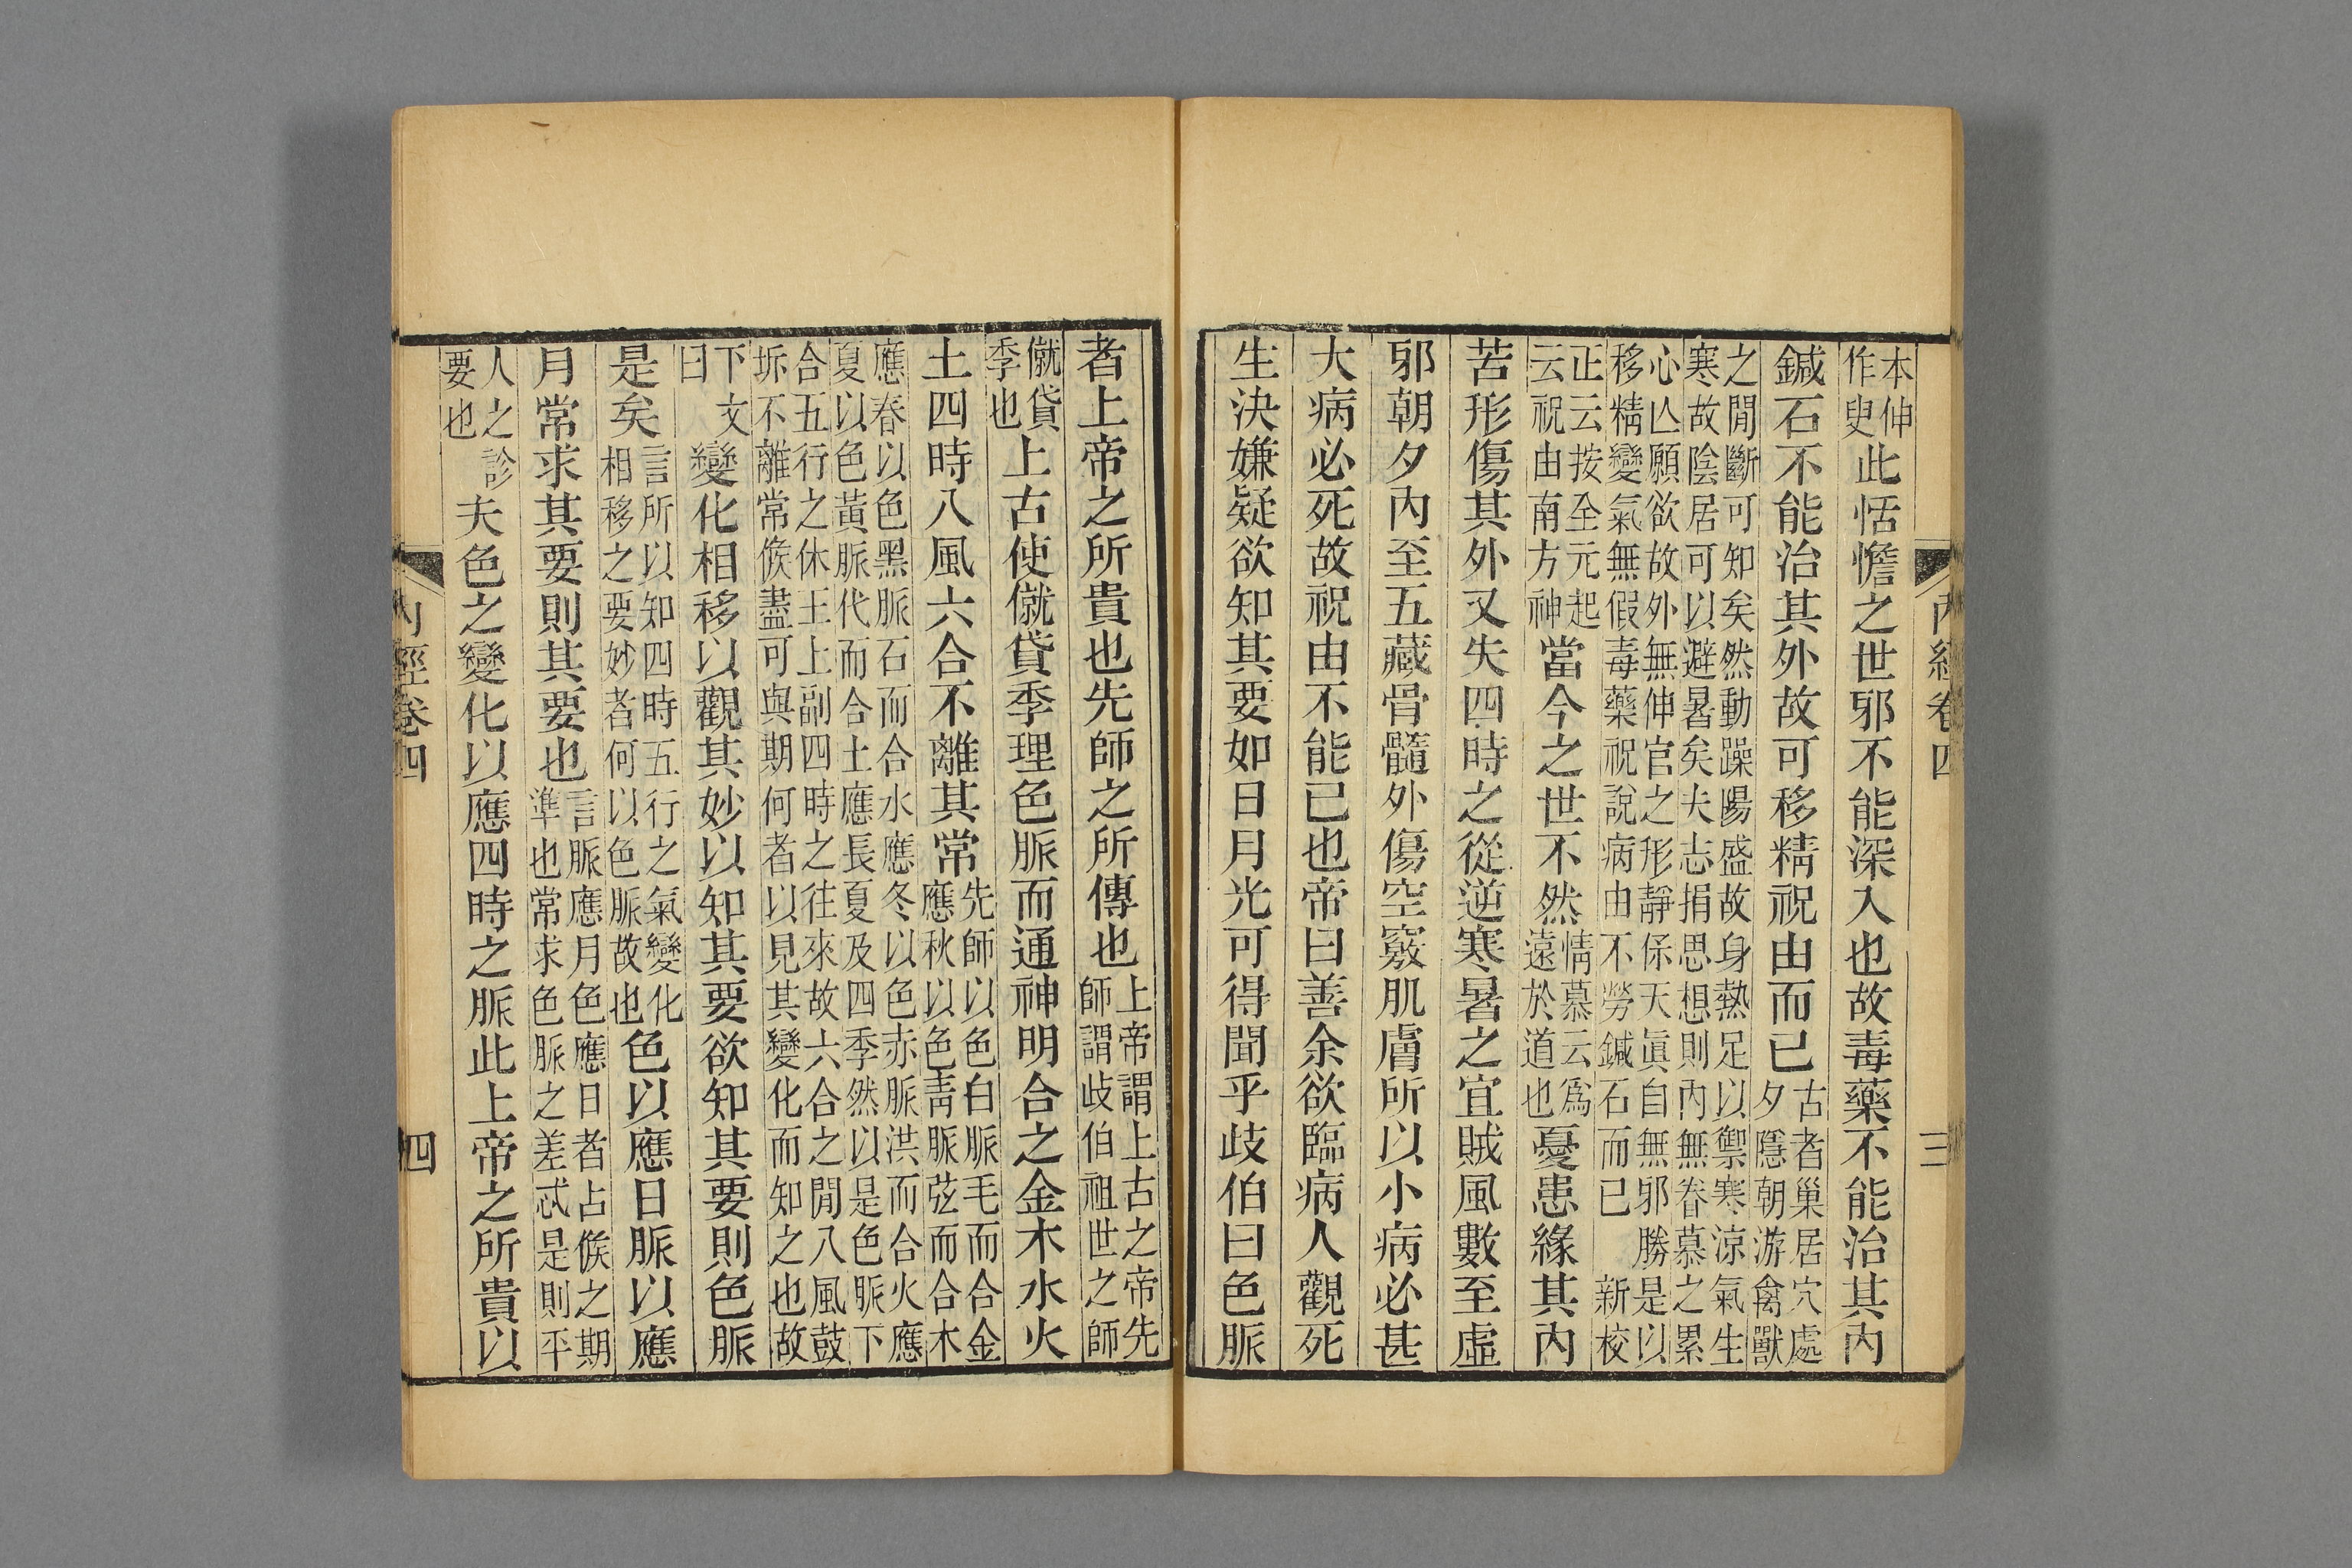 內經卷四
三
本伸作臾此恬憺之世邪不能深入也故毒藥不能治其內
鍼石不能治其外故可移精祝由而已古者巢居穴處夕隱朝游禽獸
之閒斷可知矣然動躁陽盛故身熱足以禦寒涼氣生
寒故陰居可以避暑矣夫志捐思想則內無眷慕之累
心亾願欲故外無伸官之形靜保天眞自無邪勝是以
移精變氣無假毒藥祝說病由不勞鍼石而已 新校
正云按全元起云祝由南方神當今之世不然情慕云爲遠於道也憂患緣其內
苦形傷其外又失四時之從逆寒暑之宜賊風數至虛
邪朝夕內至五藏骨髓外傷空竅肌膚所以小病必甚
大病必死故祝由不能已也帝曰善余欲臨病人觀死
生決嫌疑欲知其要如日月光可得聞乎歧伯曰色脈
者上帝之所貴也先師之所傳也上帝謂上古之帝先師謂歧伯祖世之師
僦貸季也上古使僦貸季理色脈而通神明合之金木水火
土四時八風六合不離其常先師以色白脈毛而合金應秋以色靑脈弦而合木
應春以色黑脈石而合水應冬以色赤脈洪而合火應
夏以色黃脈代而合土應長夏及四季然以是色脈下
合五行之休王上副四時之往來故六合之閒八風鼓
坼不離常候盡可與期何者以見其變化而知之也故
下文曰變化相移以觀其妙以知其要欲知其要則色脈
是矣言所以知四時五行之氣變化相移之要妙者何以色脈故也色以應日脈以應
月常求其要則其要也言脈應月色應日者占候之期準也常求色脈之差忒是則平
人之診要也夫色之變化以應四時之脈此上帝之所貴以
內經卷四
四